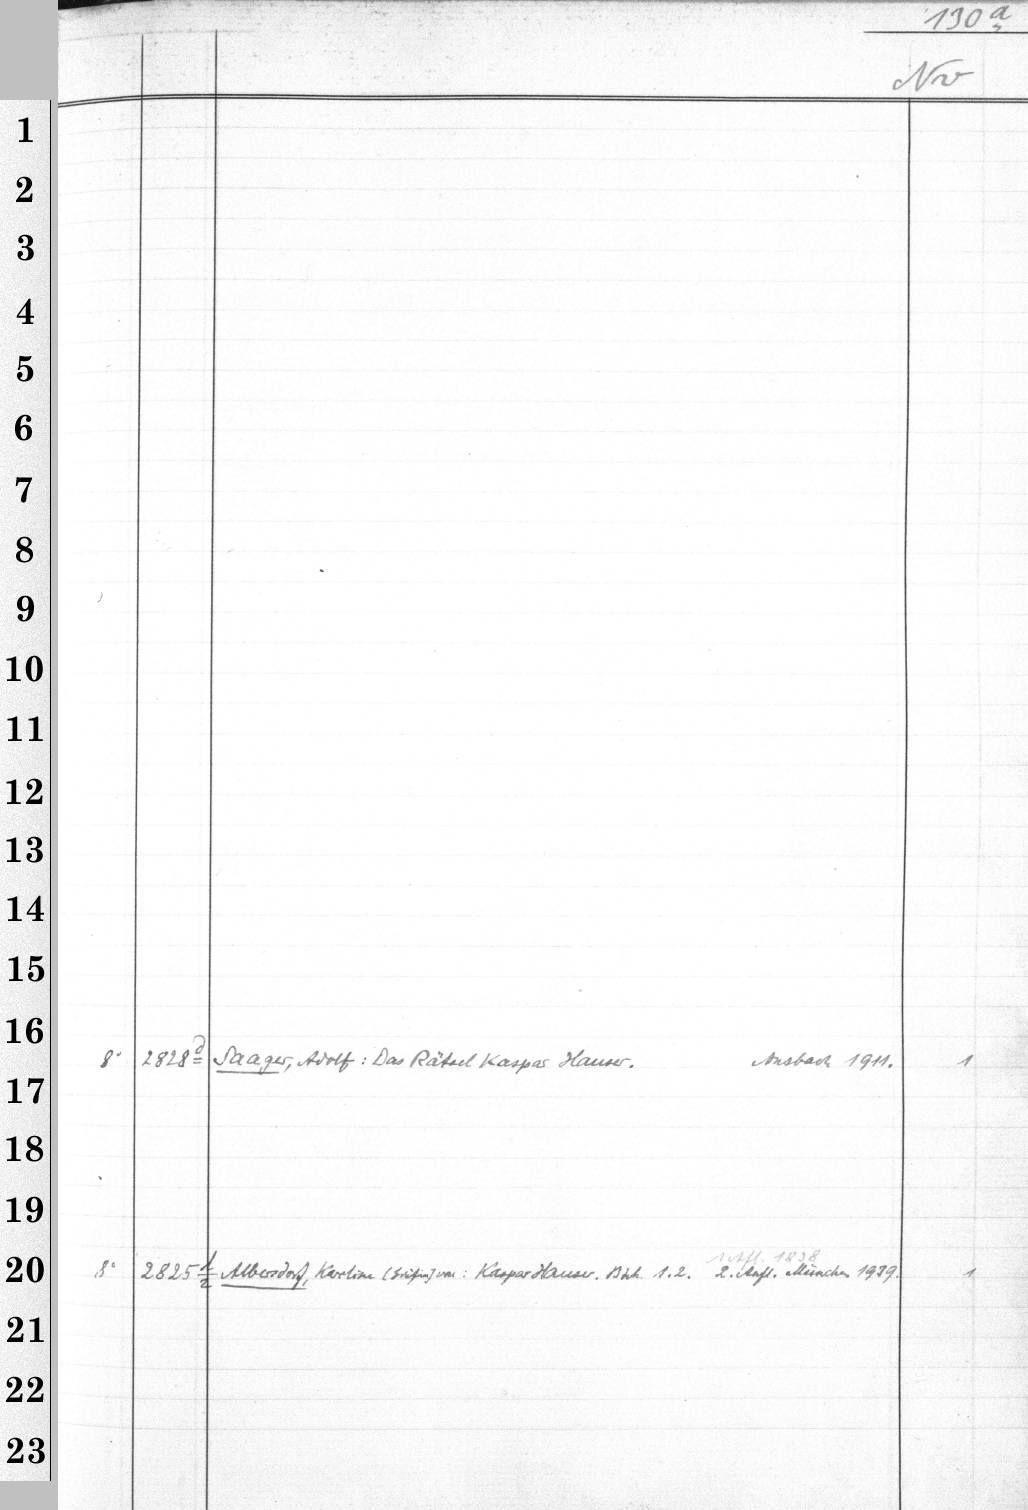 130 a
Nv
1
2
3
4
5
6
7
8
9
10
11
12
13
14
15
16
8° 2828 d Saager, Adolf: Das Rätsel Kaspar Hauser. Ansbach 1911. 1
17
18
19
1. Afl. 1838
20 8° 2825 1/2 Albersdorf, Karoline (Gräfin) von: Kaspar Hauser. Bdch. 1.2. 2. Aufl. München 1939. 1
21
22
23